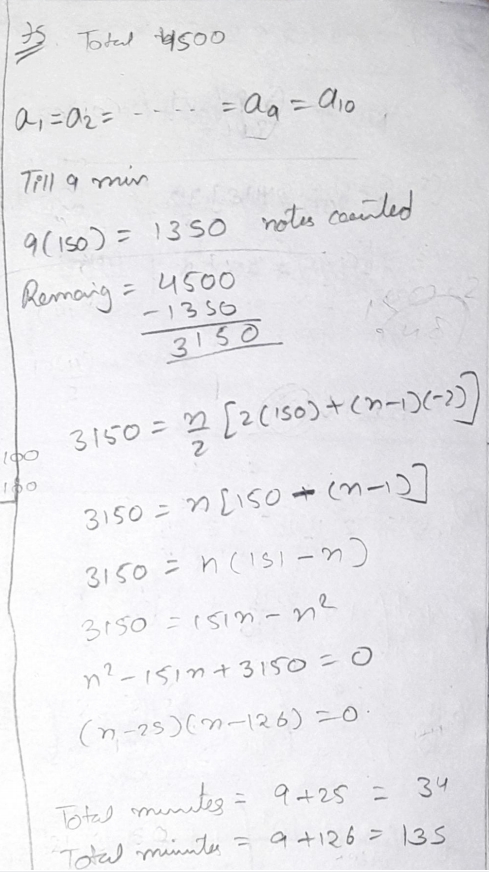 75. Total 4500
a₁=a₂= - - - - - = a₉ = a₁₀
Till 9 min
9(150) = 1350 notes counted
Remaig = 4500
- 1350
3150
3150 = n/2 [2(150)+(n-1)(-2)]
100
150
3150 = n[150 - (n-1)]
3150 = n(151-n)
3150 = 151n - n²
n² - 151n + 3150 = 0
(n-25)(n-126) = 0.
Total minutes = 9+25 = 34
Total minutes = 9+126 = 135